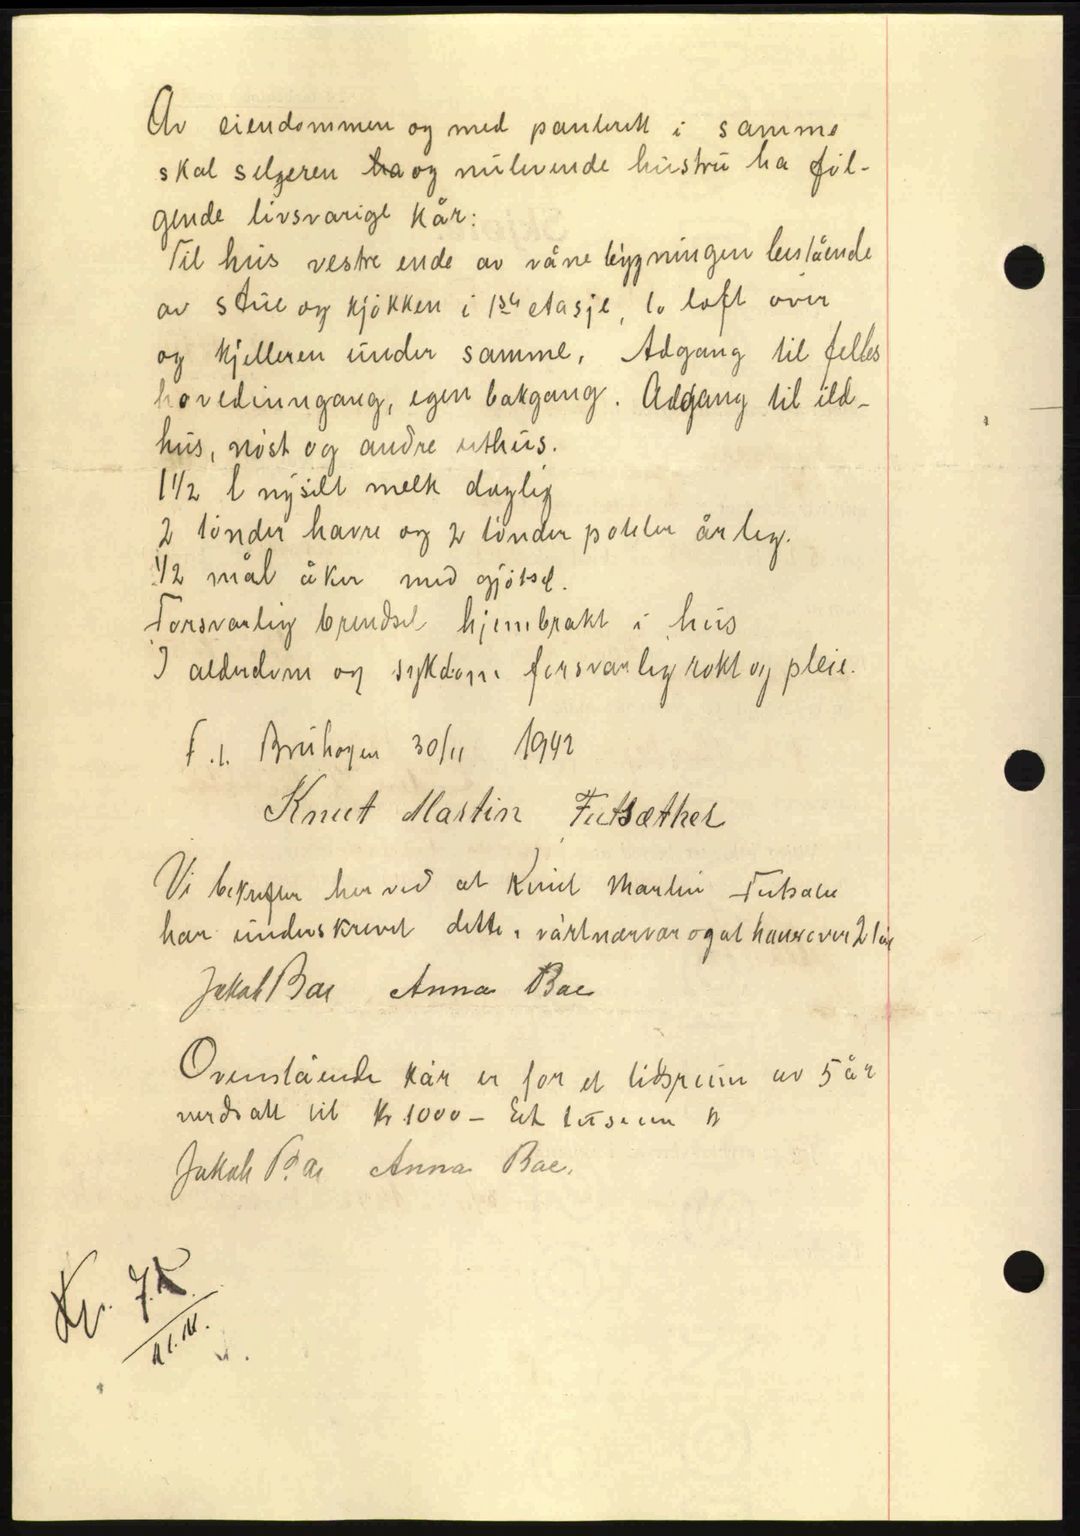 Av eiendommen og med panterett i samme
skal selgeren ha og nulevende hustru ha føl-
gende livsvarige kår:
Til hus vestre ende av våne bygningen bestående
av stue og kjøkken i 1ste etasje, to loft over
og kjelleren under samme. Adgang til felles
hovedinngang, egen bakgang. Adgang til ild-
hus, nøst og andre uthus.
1 1/2 l nysilt melk daglig
2 tønder havre og 2 tønder poteter årleg.
1/2 mål åker med gjødsel.
Forsvarlig brendsel hjembrakt i hus
I alderdom og sykdom forsvarleg røkt og pleie.
F.t. Bruhagen 30/11 1942
Knut Martin Futsæther
Vi bekrefter herved at Knut Martin Futsæter
har underskrevet dette i vårt nærvær og at han er over 21 år
Jakob Bae Anna Bae
Ovenstående kår er for et tidsrum av 5 år
verdsatt til Kr 1000 - Ett tusen kr
Jakob Bae Anna Bae.
Kr. 72